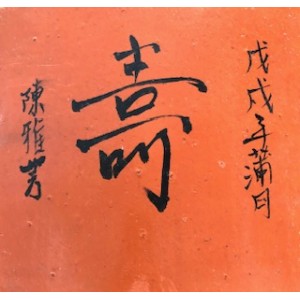 戊戌年蒲月
壽
陳雅芳